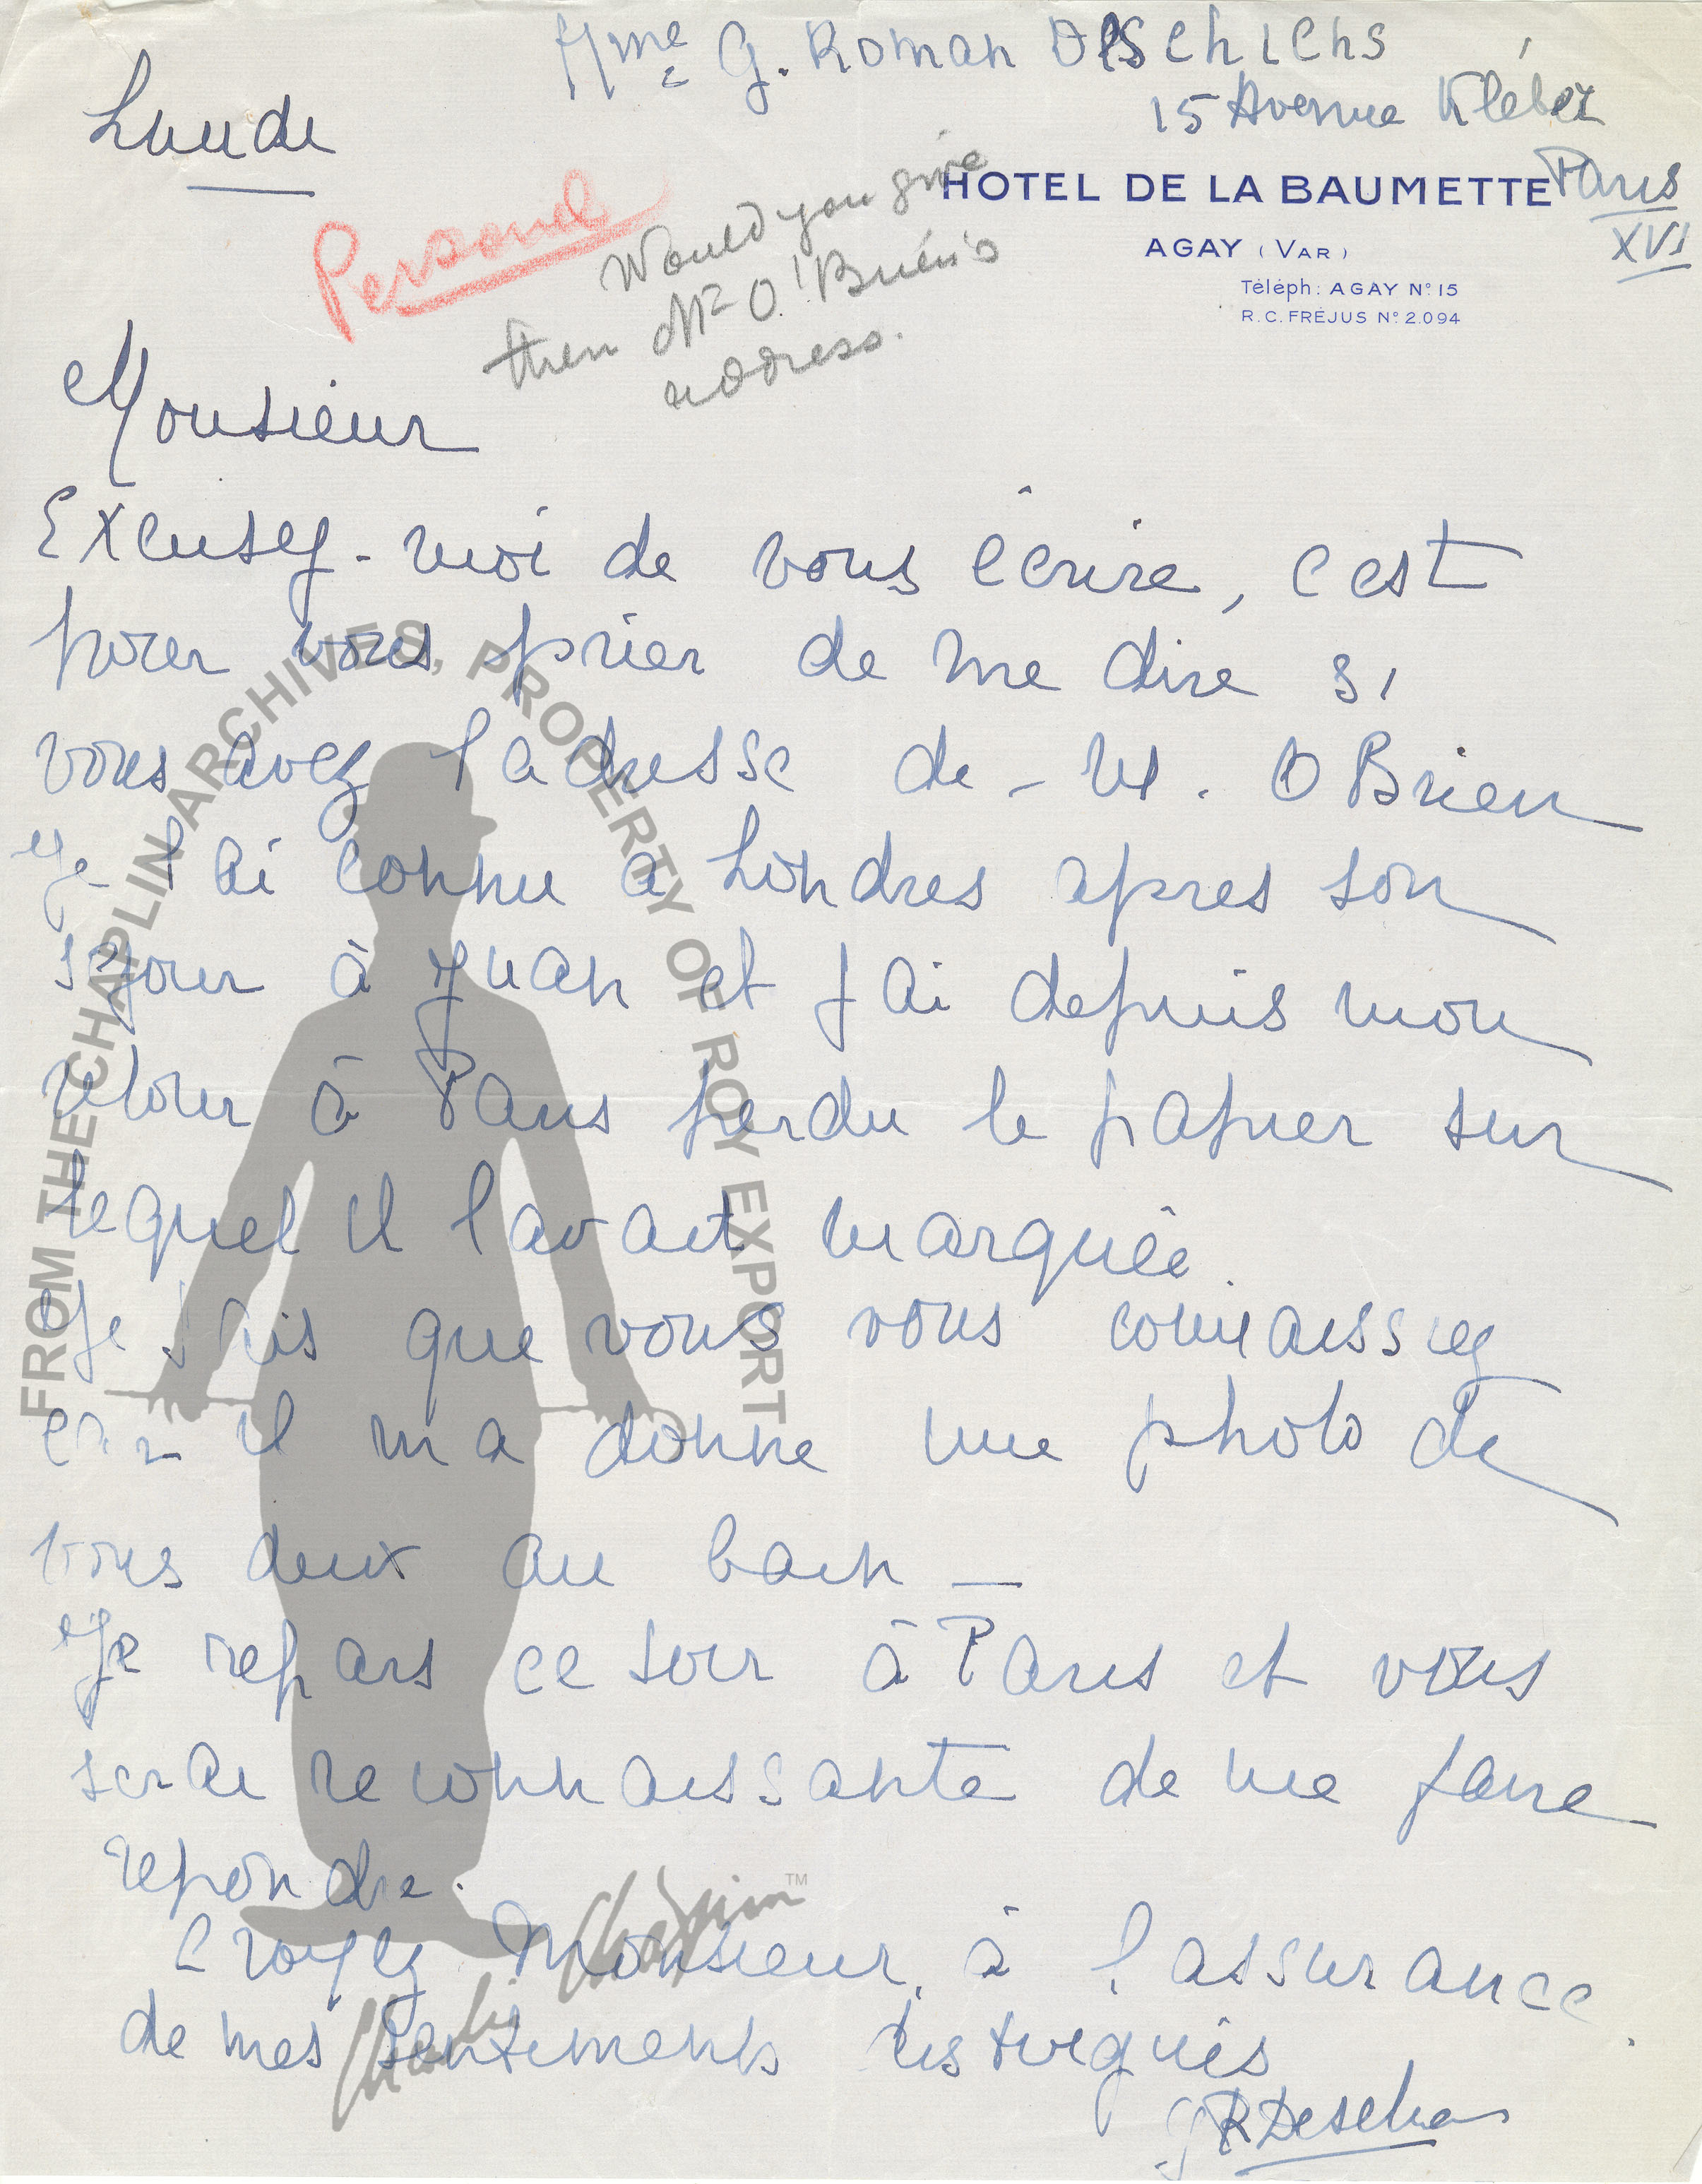 Mme G. Roman Deschiens
15 Avenue Kléber
Paris
XVI
Lundi
HOTEL DE LA BAUMETTE
AGAY (VAR)
Téléph: AGAY Nº 15
R.C. FRÉJUS Nº 2.094
Personel
Would you give
them Mr O'Brien's
address.
Monsieur
Excusez-moi de vous écrire, c est
pour vous prier de me dire si
vous avez l adresse de - M. O Brien
Je l ai connu a Londres apres son
sejour à Juan et j ai depuis mon
retour à Paris perdu le papier sur
lequel il l avait marquée.
Je sais que vous vous connaissiez
car il m a donne une photo de
vous deux au bain —
Je repars ce soir à Paris et vous
serai reconnaissante de me faire
repondre.
Croyez Monsieur, à l assurance
de mes sentiments distingués
FROM THE CHAPLIN ARCHIVES, PROPERTY OF ROY EXPORT
Charlie Chaplin™